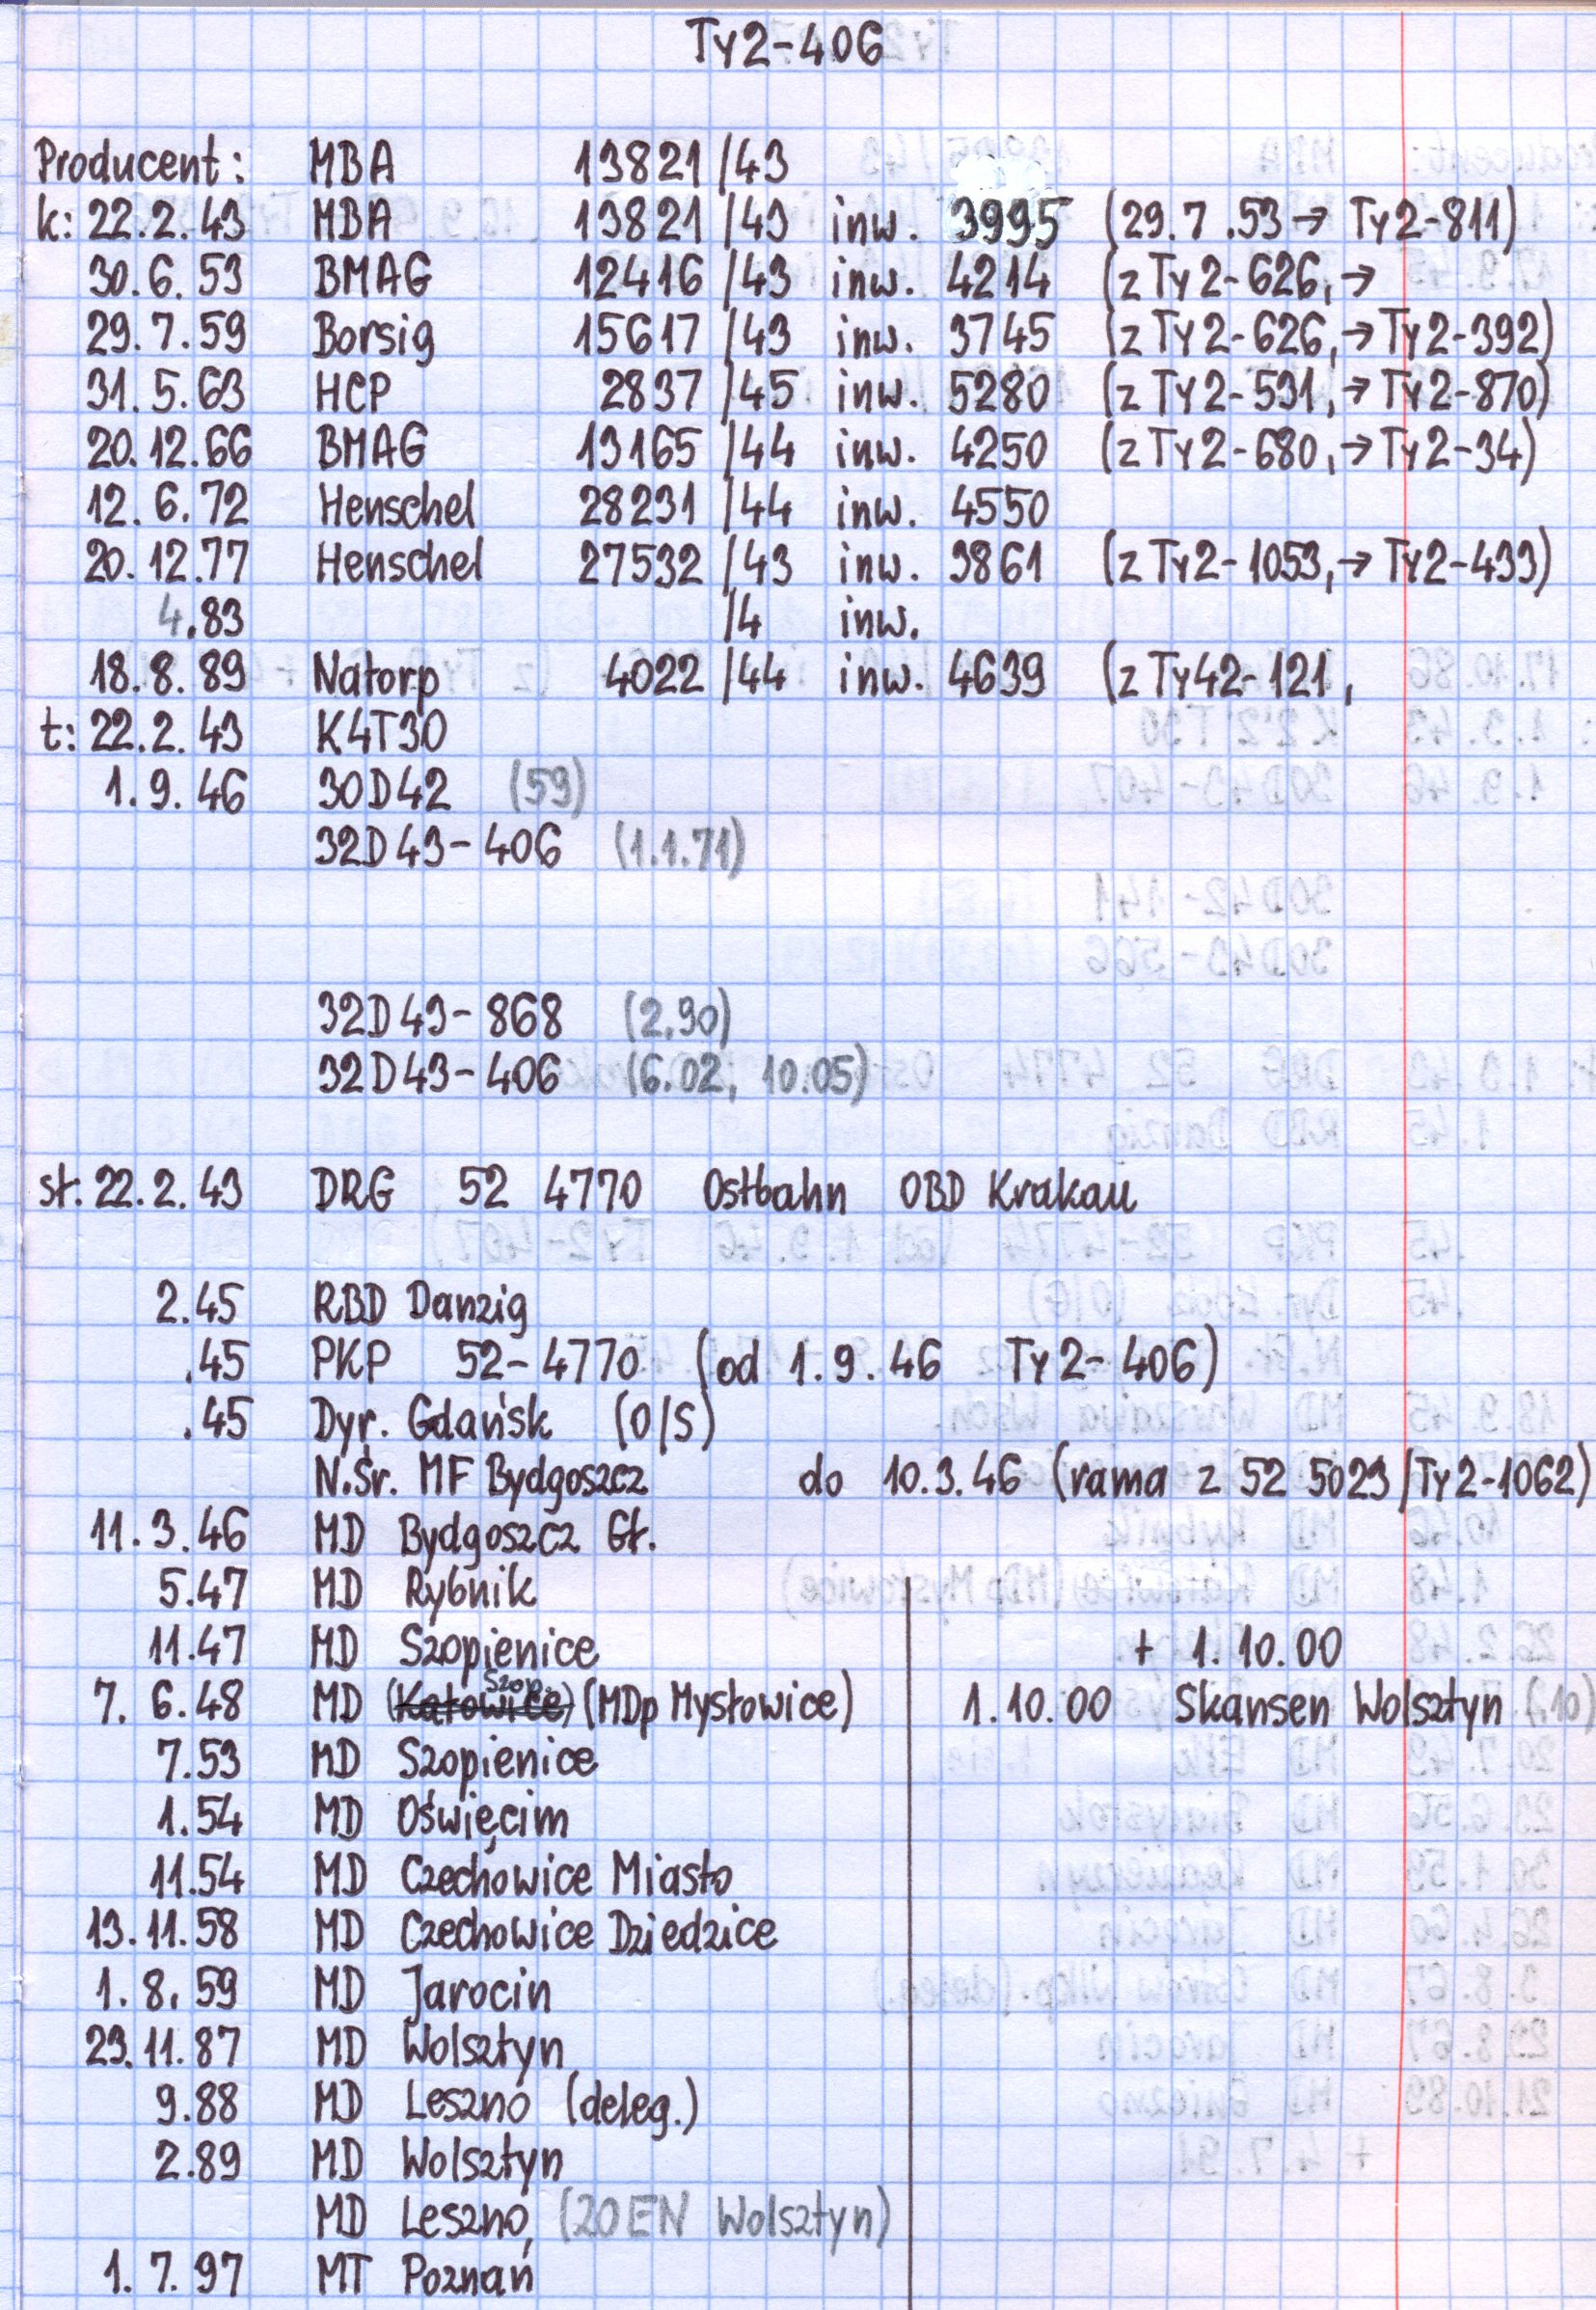 Ty2-406
Producent: MBA 13821/43
k: 22.2.43 MBA 13821/43 inw. 3995 (29.7.53→ Ty2-811)
30.6.53 BMAG 12416/43 inw. 4214 (z Ty2-626,→
29.7.59 Borsig 15617/43 inw. 3745 (z Ty2-626,→Ty2-392)
31.5.63 HCP 2837/45 inw. 5280 (z Ty2-531,→Ty2-870)
20.12.66 BMAG 13165/44 inw. 4250 (z Ty2-680,→Ty2-34)
12.6.72 Henschel 28231/44 inw. 4550
20.12.77 Henschel 27532/43 inw. 3861 (z Ty2-1053,→Ty2-433)
4.83 /4 inw.
18.8.89 Natorp 4022/44 inw. 4639 (z Ty42-121,
t: 22.2.43 K4T30
1.9.46 30D42 (59)
32D43-406 (1.1.71)
32D43-868 (2.90)
32D43-406 (6.02, 10.05)
st: 22.2.43 DRG 52 4770 Ostbahn OBD Krakau
2.45 RBD Danzig
.45 PKP 52-4770 (od 1.9.46 Ty2-406)
.45 Dyr. Gdańsk (O/S)
N.Śr. MF Bydgoszcz do 10.3.46 (rama z 52 5023/Ty2-1062)
11.3.46 MD Bydgoszcz Gł.
5.47 MD Rybnik
11.47 MD Szopienice + 1.10.00
7.6.48 MD (Katowice) Szop. (MDp Mysłowice) 1.10.00 Skansen Wolsztyn (.10)
7.53 MD Szopienice
1.54 MD Oświęcim
11.54 MD Czechowice Miasto
13.11.58 MD Czechowice Dziedzice
1.8.59 MD Jarocin
23.11.87 MD Wolsztyn
9.88 MD Leszno (deleg.)
2.89 MD Wolsztyn
MD Leszno (20EN Wolsztyn)
1.7.97 MT Poznań